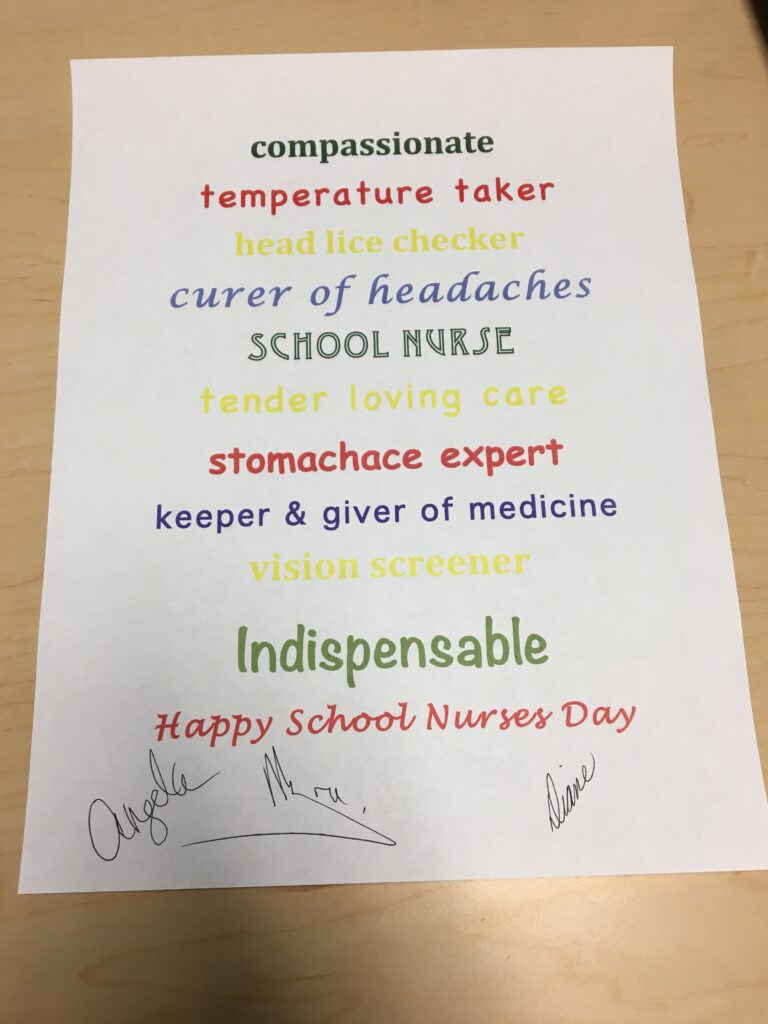 compassionate
temperature taker
head lice checker
curer of headaches
SCHOOL NURSE
tender loving care
stomachace expert
keeper & giver of medicine
vision screener
Indispensable
Happy School Nurses Day
Angela Diane